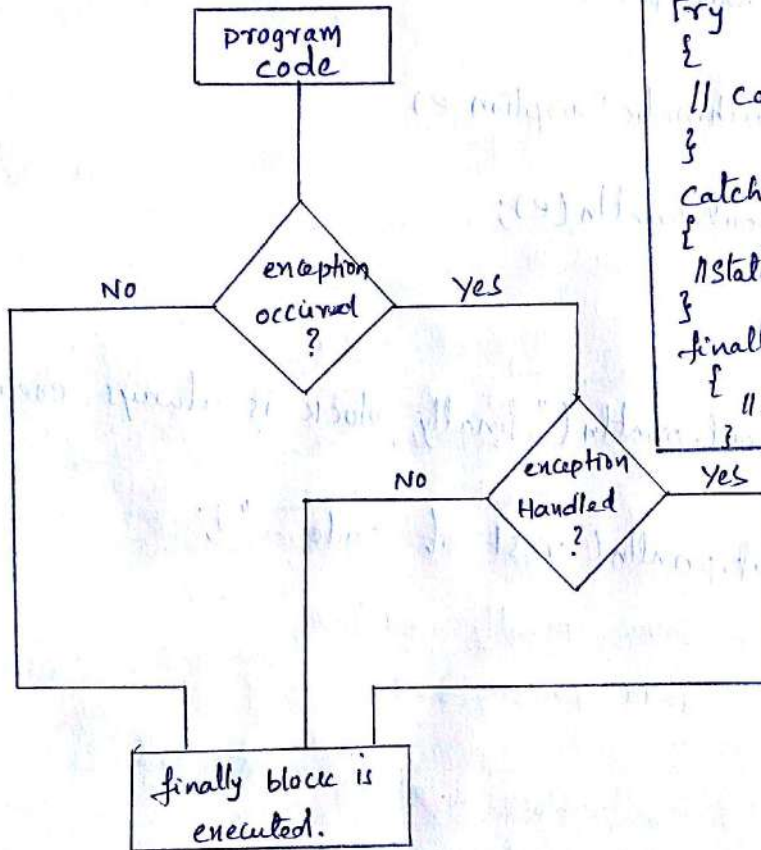 program
code
exception
occured
?
No
Yes
exception
Handled
?
No
Yes
finally block is
executed.
Try
{
//
}
catch
{
//
}
finally
{
//
}